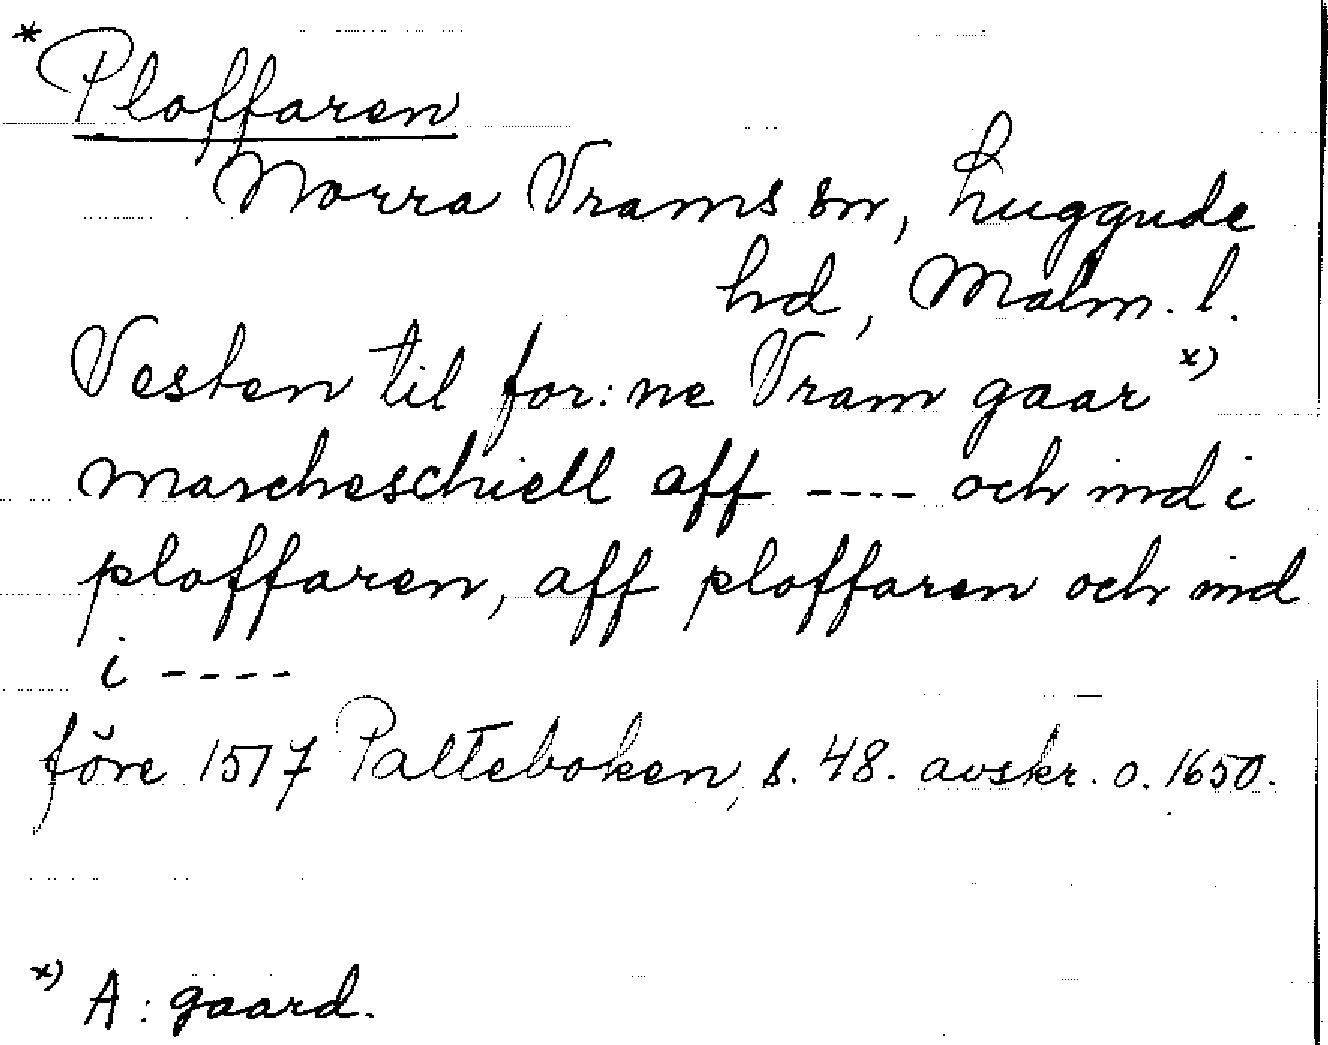 * Ploffaren
Norra Vrams sn, Luggude
hd, Malm. l.
Vesten til for:ne Vram gaar x)
marcheschiell aff ---- och ind i
ploffaren, aff ploffaren och ind
i ----
före 1517 Palteboken, s. 48. avskr. o. 1650.
x) A: gaard.